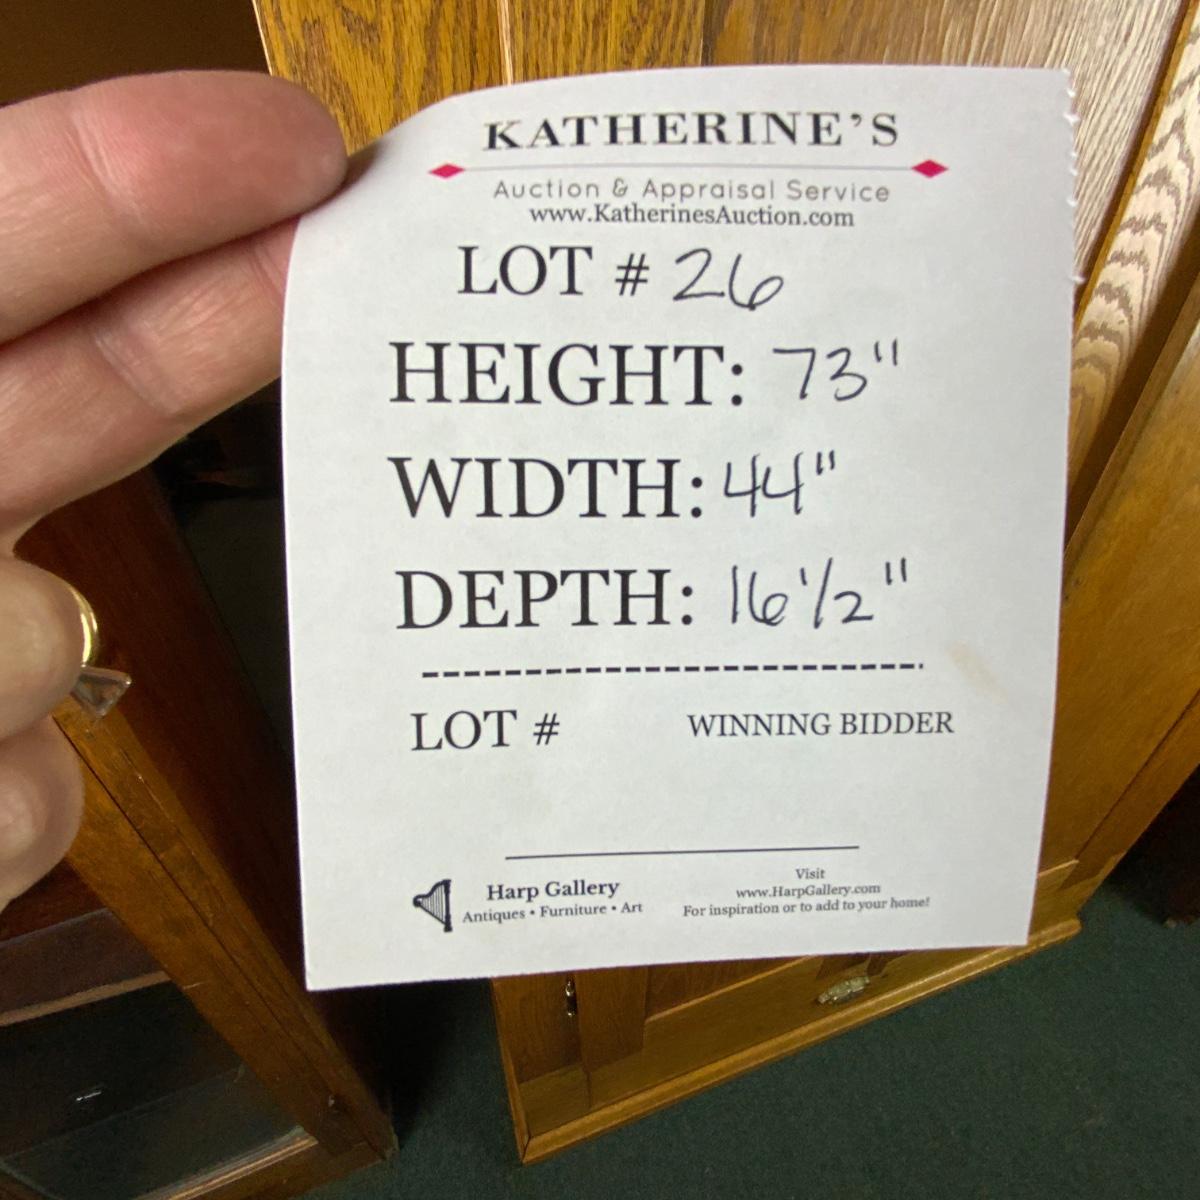 KATHERINE'S
Auction & Appraisal Service
www.KatherinesAuction.com
LOT # 26
HEIGHT: 73"
WIDTH: 44"
DEPTH: 16 1/2"
LOT # WINNING BIDDER
Harp Gallery
Antiques • Furniture • Art
Visit
www.HarpGallery.com
For inspiration or to add to your home!